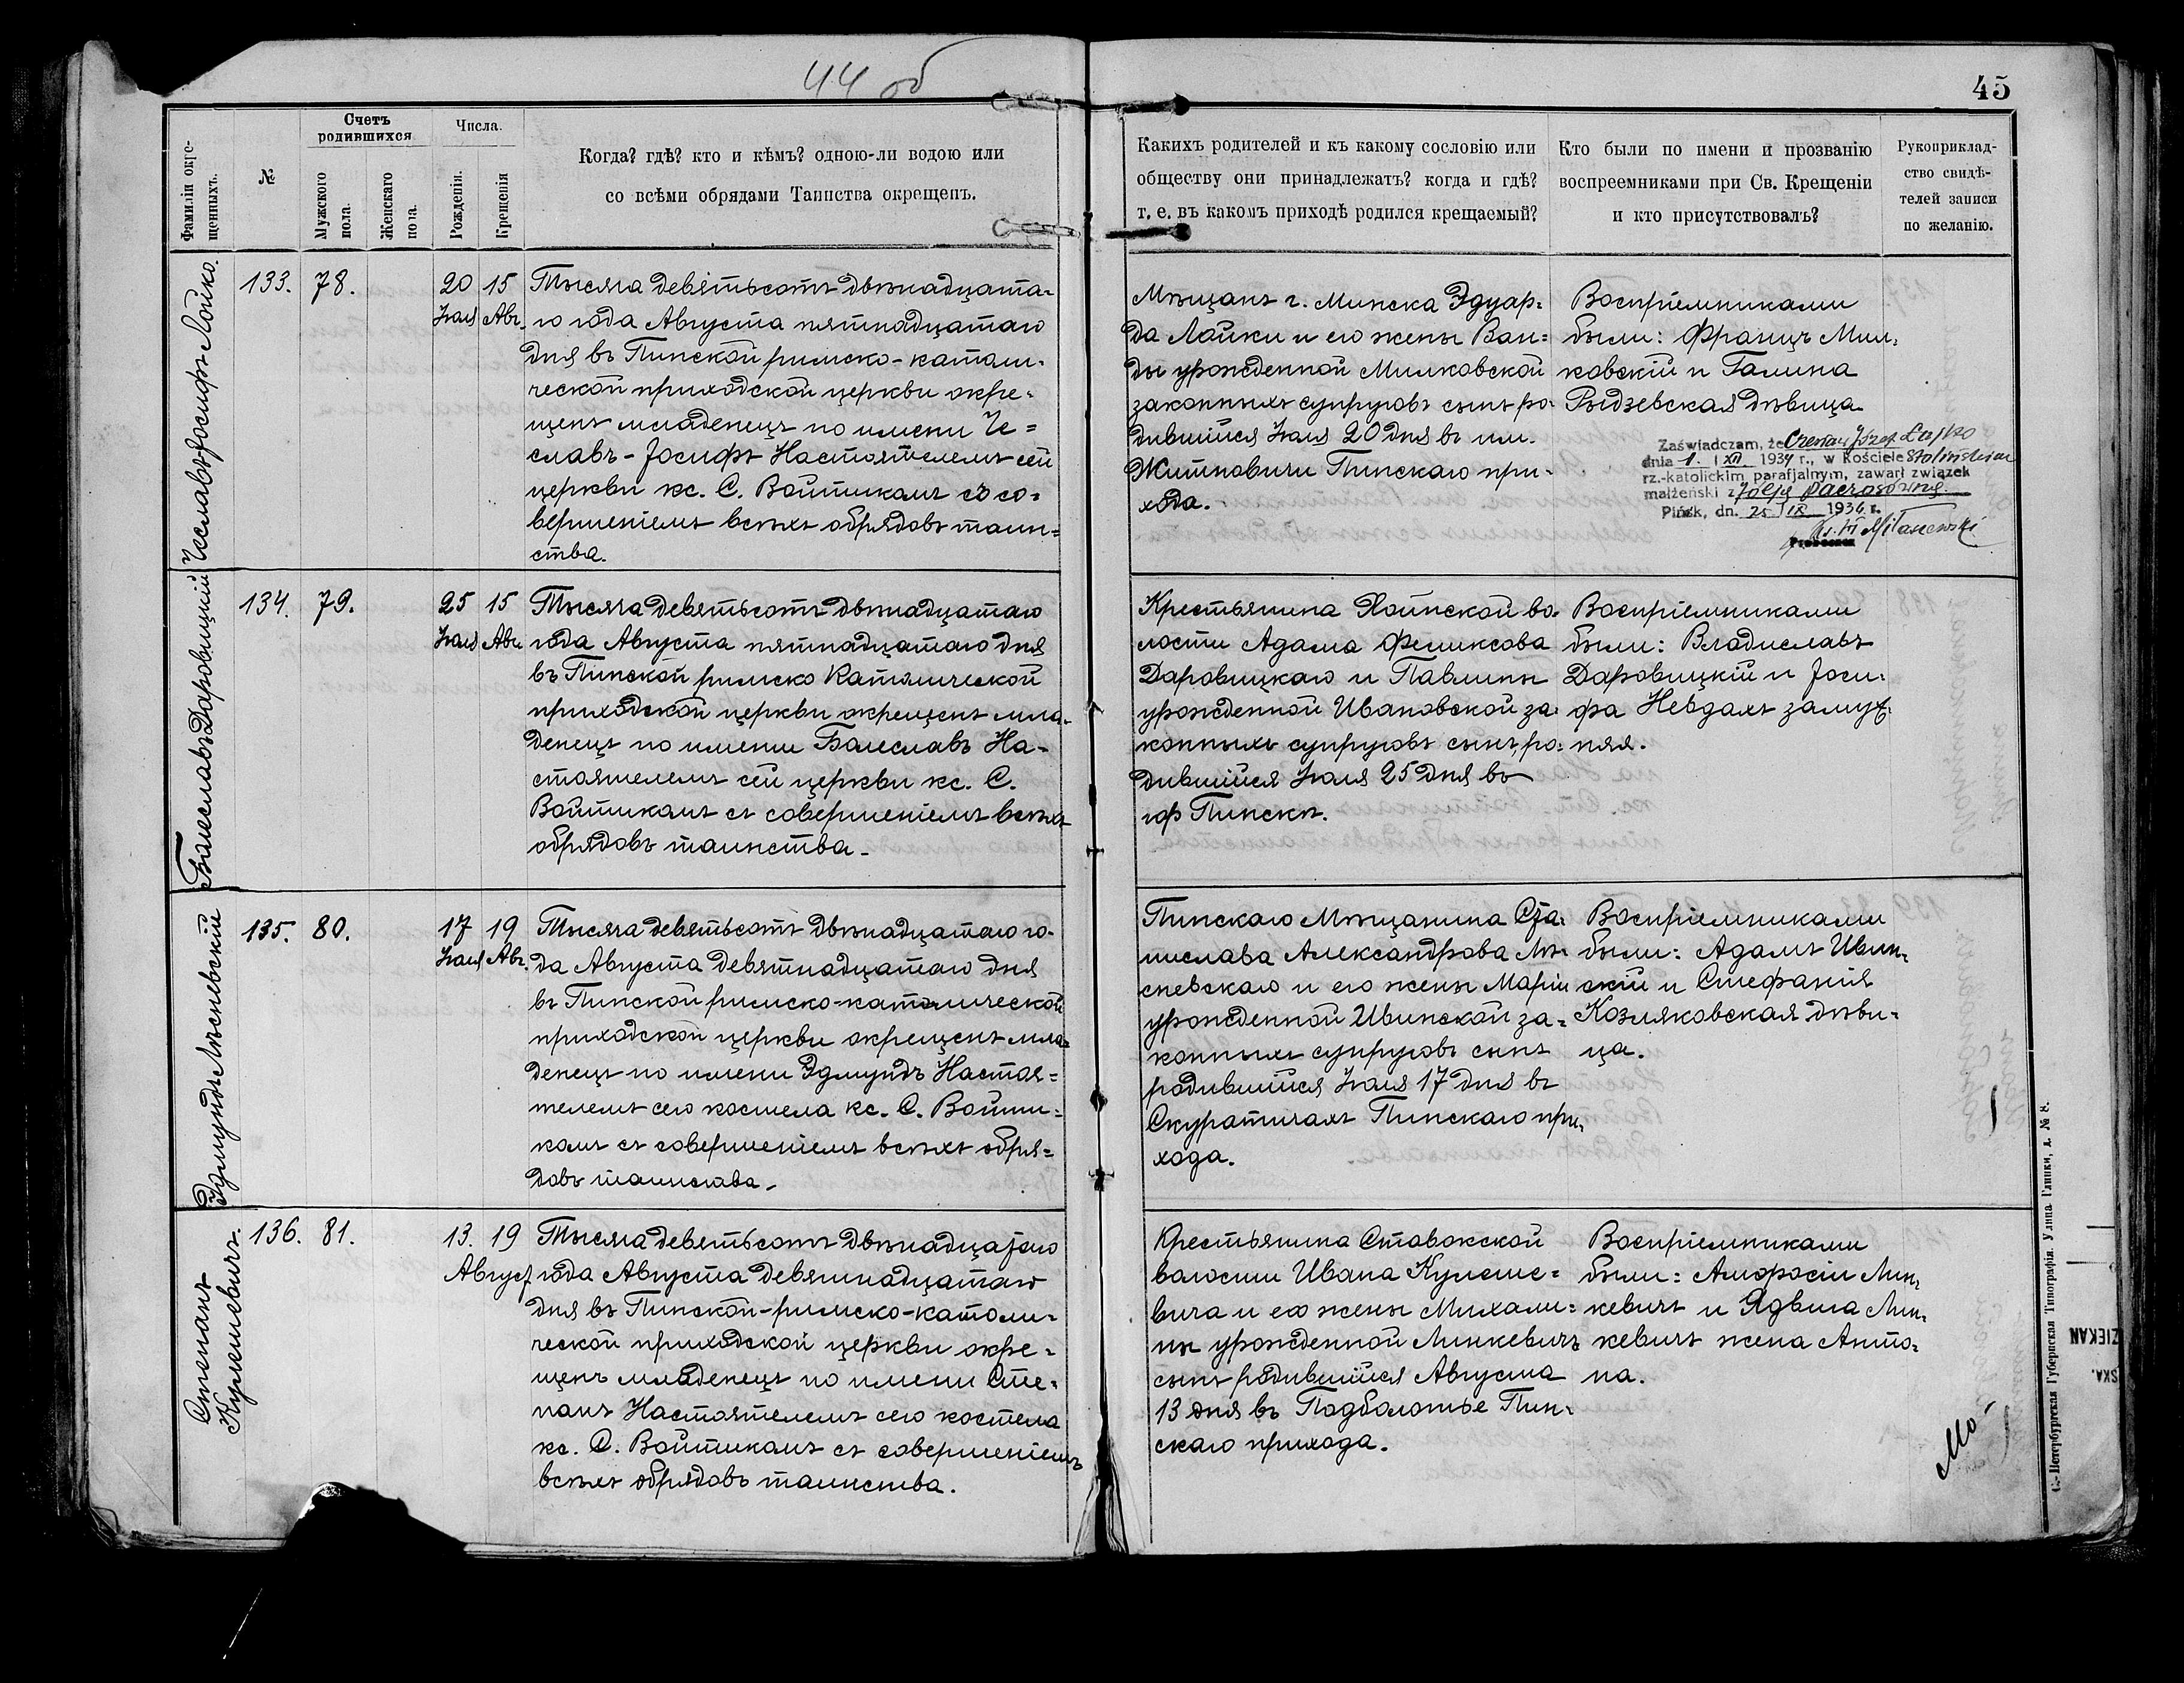 44 об
45
Фамиліи окре-
щенныхъ.
№
Счетъ
родившихся
Мужского
пола.
Женскаго
пола.
Числа.
Рожденія.
Крещенія
Когда? гдѣ? кто и кѣмъ? одною-ли водою или
со всѣми обрядами Таинства окрещенъ.
Какихъ родителей и къ какому сословію или
обществу они принадлежатъ? когда и гдѣ?
т. е. въ какомъ приходѣ родился крещаемый?
Кто были по имени и прозванію
воспреемниками при Св. Крещеніи
и кто присутствовалъ?
Рукоприклад-
ство свидѣ-
телей записи
по желанію.
Чеславъ-Іосифъ Лойко.
133. 78.
20 15
Іюля Авг.
Тысяча девятьсотъ двѣнадцата-
го года Августа пятнадцатаго
дня въ Пинской римско-католи-
ческой приходской церкви окре-
щенъ младенецъ по имени Че=
славъ-Іосифъ Настоятелемъ сей
церкви кс. С. Войтикамъ съ со=
вершеніемъ всѣхъ обрядовъ таин=
ства.
Мѣщанъ г. Минска Эдуар=
да Лойки и его жены Ван=
ды урожденной Милковской
законныхъ супруговъ сынъ ро-
дившійся Іюля 20 дня въ им.
Житновичи Пинскаго при-
хода.
Воспріемниками
были: Францъ Мил-
ковскій и Галина
Рыдзевская дѣвица
Zaświadczam, że Czesław Józef Łojko
dnia 1. / XII. 1934 r., w Kościele Stolińskim
rz.-katolickim parafjalnym, zawarł związek
małżeński z Zofją
Pińsk, dn. 25 / IX 1936 r.
Proboszcz
Балеславъ Даровицкій
134. 79.
25 15
Іюля Авг.
Тысяча девятьсотъ двѣнадцатаго
года Августа пятнадцатаго дня
въ Пинской римско Католической
приходской церкви окрещенъ мла-
денецъ по имени Балеславъ На-
стоятелемъ сей церкви кс. С.
Войтикамъ съ совершеніемъ всѣхъ
обрядовъ таинства.
Крестьянина Хоинской во-
лости Адама Феликсова
Даровицкаго и Павлины
урожденной Ивановской за-
конныхъ супруговъ сынъ, ро-
дившійся Іюля 25 дня въ
гор Пинскѣ.
Воспріемниками
были: Владиславъ
Даровицкій и Іоси-
фа Невдахъ замуж-
няя.
Эдмундъ Лѣсневскій
135. 80.
17 19
Іюля Авг.
Тысяча девятьсотъ двѣнадцатаго го-
да Августа девятнадцатаго дня
въ Пинской римско-католической
приходской церкви окрещенъ мла-
денецъ по имени Эдмундъ Настоя=
телемъ сего костела кс. С. Войти-
камъ съ совершеніемъ всѣхъ обря=
довъ таинства.
Пинскаго Мѣщанина Ста-
нислава Александрова Лѣ-
сневскаго и его жены Маріи
урожденной Ивинской за=
конныхъ супруговъ сынъ
родившійся Іюля 17 дня въ
Скуратичахъ Пинскаго при-
хода.
Воспріемниками
были: Адамъ Ивин-
скій и Стефанія
Козляковская дѣви-
ца.
Степанъ
Кулешевичъ.
136. 81.
13. 19
Август
Тысяча девятьсотъ двѣнадцатаго
года Августа девятнадцатаго
дня въ Пинской-римско-католи-
ческой приходской церкви окре=
щенъ младенецъ по имени Сте-
панъ Настоятелемъ сего костела
кс. С. Войтикамъ съ совершеніемъ
всѣхъ обрядовъ таинства.
Крестьянина Ставокской
волости Ивана Кулеше=
вича и его жены Михали=
ны урожденной Линкевичъ
сынъ родившійся Августа
13 дня въ Подболотье Пин-
скаго прихода.
Воспріемниками
были: Амфросіи Лин-
кевичъ и Ядвига Лин-
кевичъ жена Анто=
на.
С.-Петербургская Губернская Типографія. Улица Глинки, д. № 8.